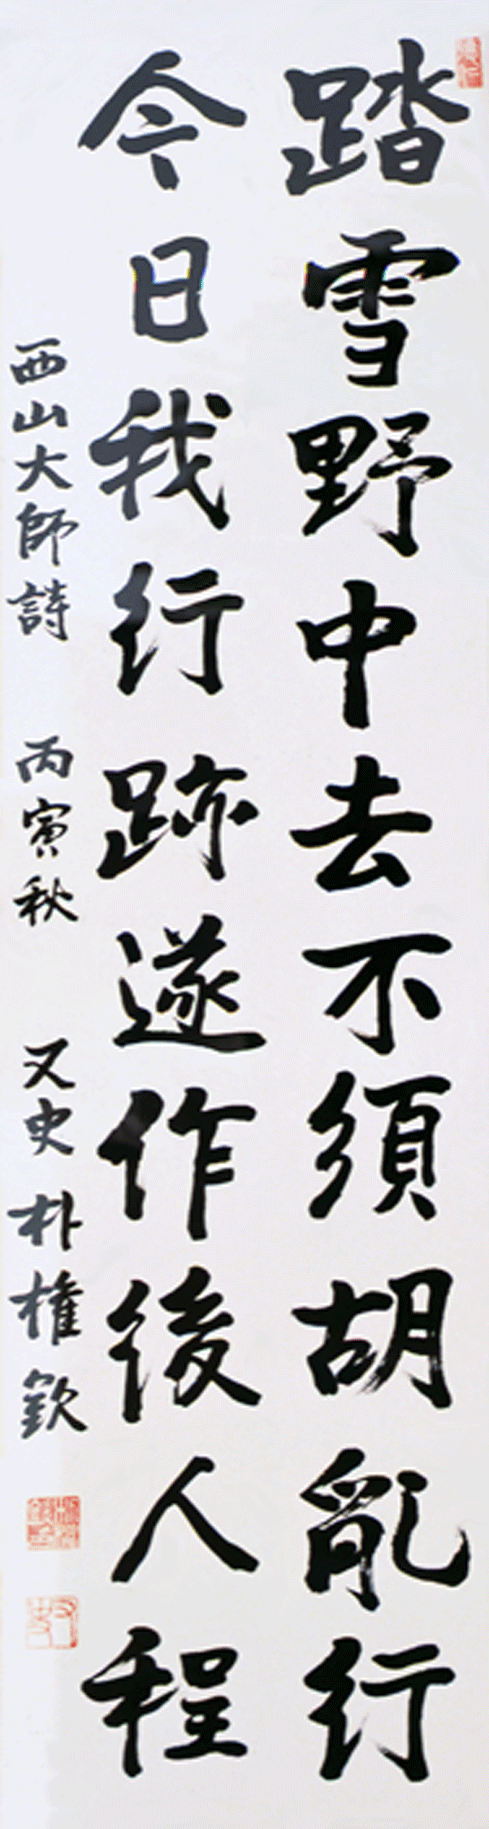 踏雪野中去不須胡亂行
今日我行跡遂作後人程
西山大師詩 丙寅秋 又史 朴權欽